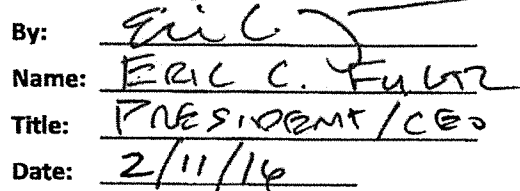 By: Eric C.
Name: ERIC C. FULTZ
Title: PRESIDENT/CEO
Date: 2/11/16